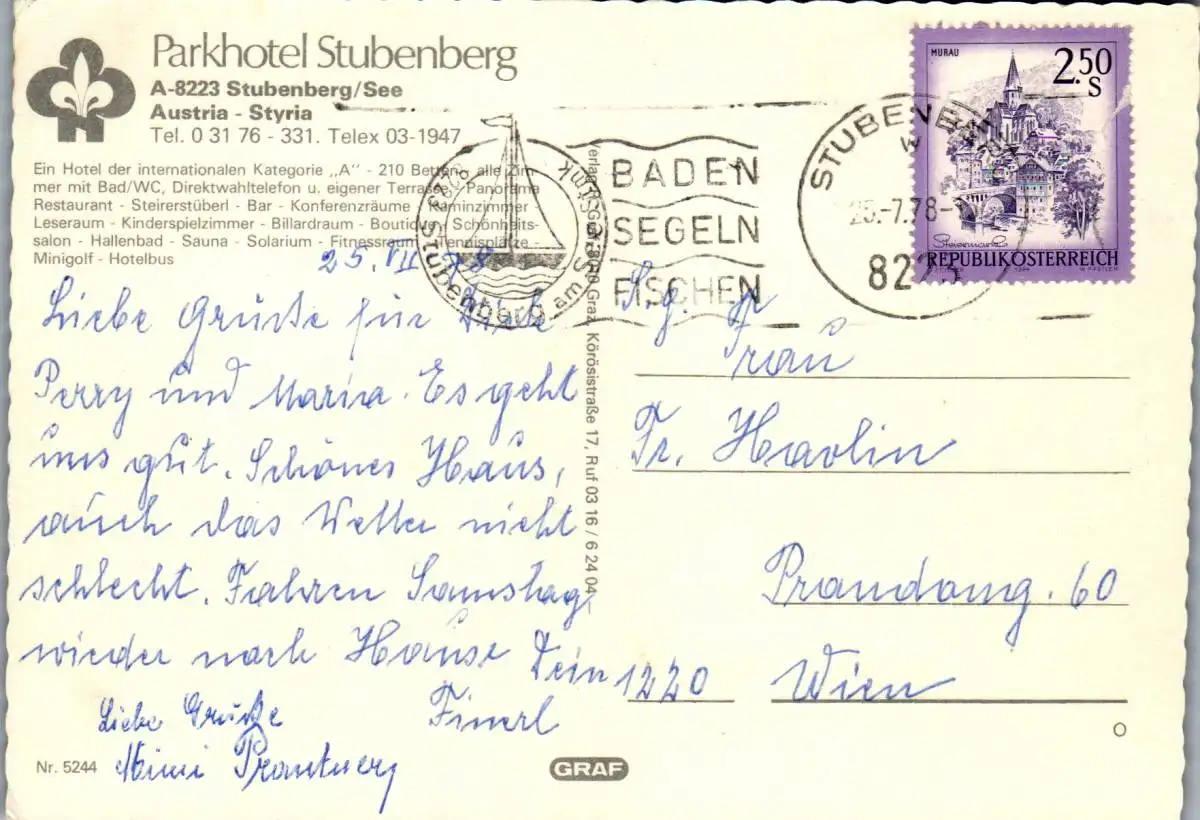 Parkhotel Stubenberg
A-8223 Stubenberg/See
Austria - Styria
Tel. 0 31 76 - 331. Telex 03-1947
Ein Hotel der internationalen Kategorie „A" - 210 Betten, alle Zim-
mer mit Bad/WC, Direktwahltelefon u. eigener Terrasse - Panorama
Restaurant - Steirerstüberl - Bar - Konferenzräume - Kaminzimmer
Leseraum - Kinderspielzimmer - Billardraum - Boutique - Schönheits-
salon - Hallenbad - Sauna - Solarium - Fitnessraum - Tennisplätze -
Minigolf - Hotelbus
25. VII 78
Liebe Grüsse für Dich
Perry und Maria. Es geht
uns gut. Schönes Haus,
auch das Wetter nicht
schlecht. Fahren Samstag
wieder nach Hause Dein
Finerl
Liebe Grüsse
Mimi
Nr. 5244
GRAF
8223 Stubenberg am See
BADEN
SEGELN
FISCHEN
STUBENBERG
25.-7.78
8223
MURAU
2.50
S
Steiermark
REPUBLIK ÖSTERREICH
Graz, Körösistraße 17, Ruf 03 16 / 6 24 04
S.g.
Frau
Fr. Havlin
Prandaug. 60
1220 Wien
O